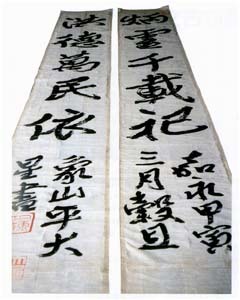 炳靈千載祀
嘉永甲寅
三月穀旦
洪德萬民依
象山平大
星書